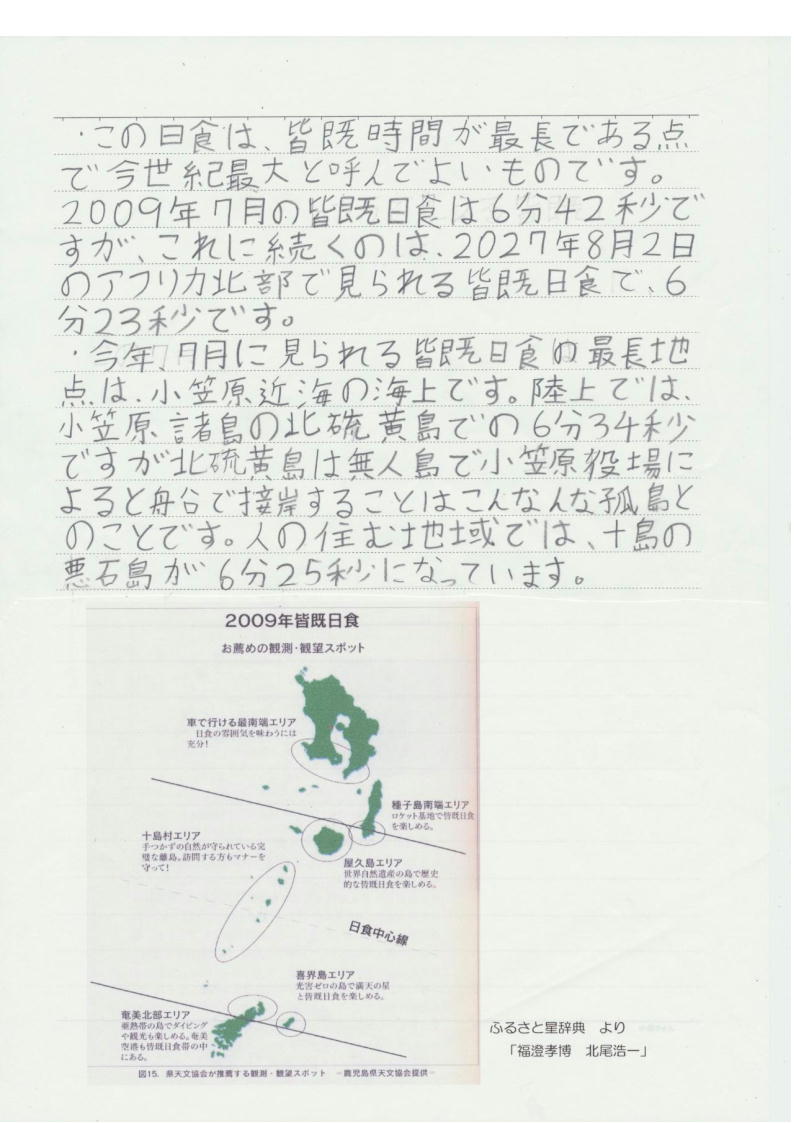 ・この日食は、皆既時間が最長である点
で今世紀最大と呼んでよいものです。
2009年7月の皆既日食は6分42秒で
すが、これに続くのは、2027年8月2日
のアフリカ北部で見られる皆既日食で、6
分23秒です。
・今年、7月に見られる皆既日食の最長地
点は、小笠原近海の海上です。陸上では、
小笠原諸島の北硫黄島での6分34秒
ですが北硫黄島は無人島で小笠原役場に
よると舟谷で接岸することはこんなんな孤島と
のことです。人の住む地域では、十島の
悪石島が6分25秒になっています。
2009年皆既日食
お薦めの観測・観望スポット
車で行ける最南端エリア
日食の雰囲気を味わうには
充分!
種子島南端エリア
ロケット基地で皆既日食
を楽しめる。
十島村エリア
手つかずの自然が守られている完
璧な離島。訪問する方もマナーを
守って!
屋久島エリア
世界自然遺産の島で歴史
的な皆既日食を楽しめる。
日食中心線
喜界島エリア
光害ゼロの島で満天の星
と皆既日食を楽しめる。
奄美北部エリア
亜熱帯の島でダイビング
や観光も楽しめる。奄美
空港も皆既日食帯の中
にある。
図15. 県天文協会が推薦する観測・観望スポット －鹿児島県天文協会提供－
ふるさと星辞典 より
「福澄孝博 北尾浩一」